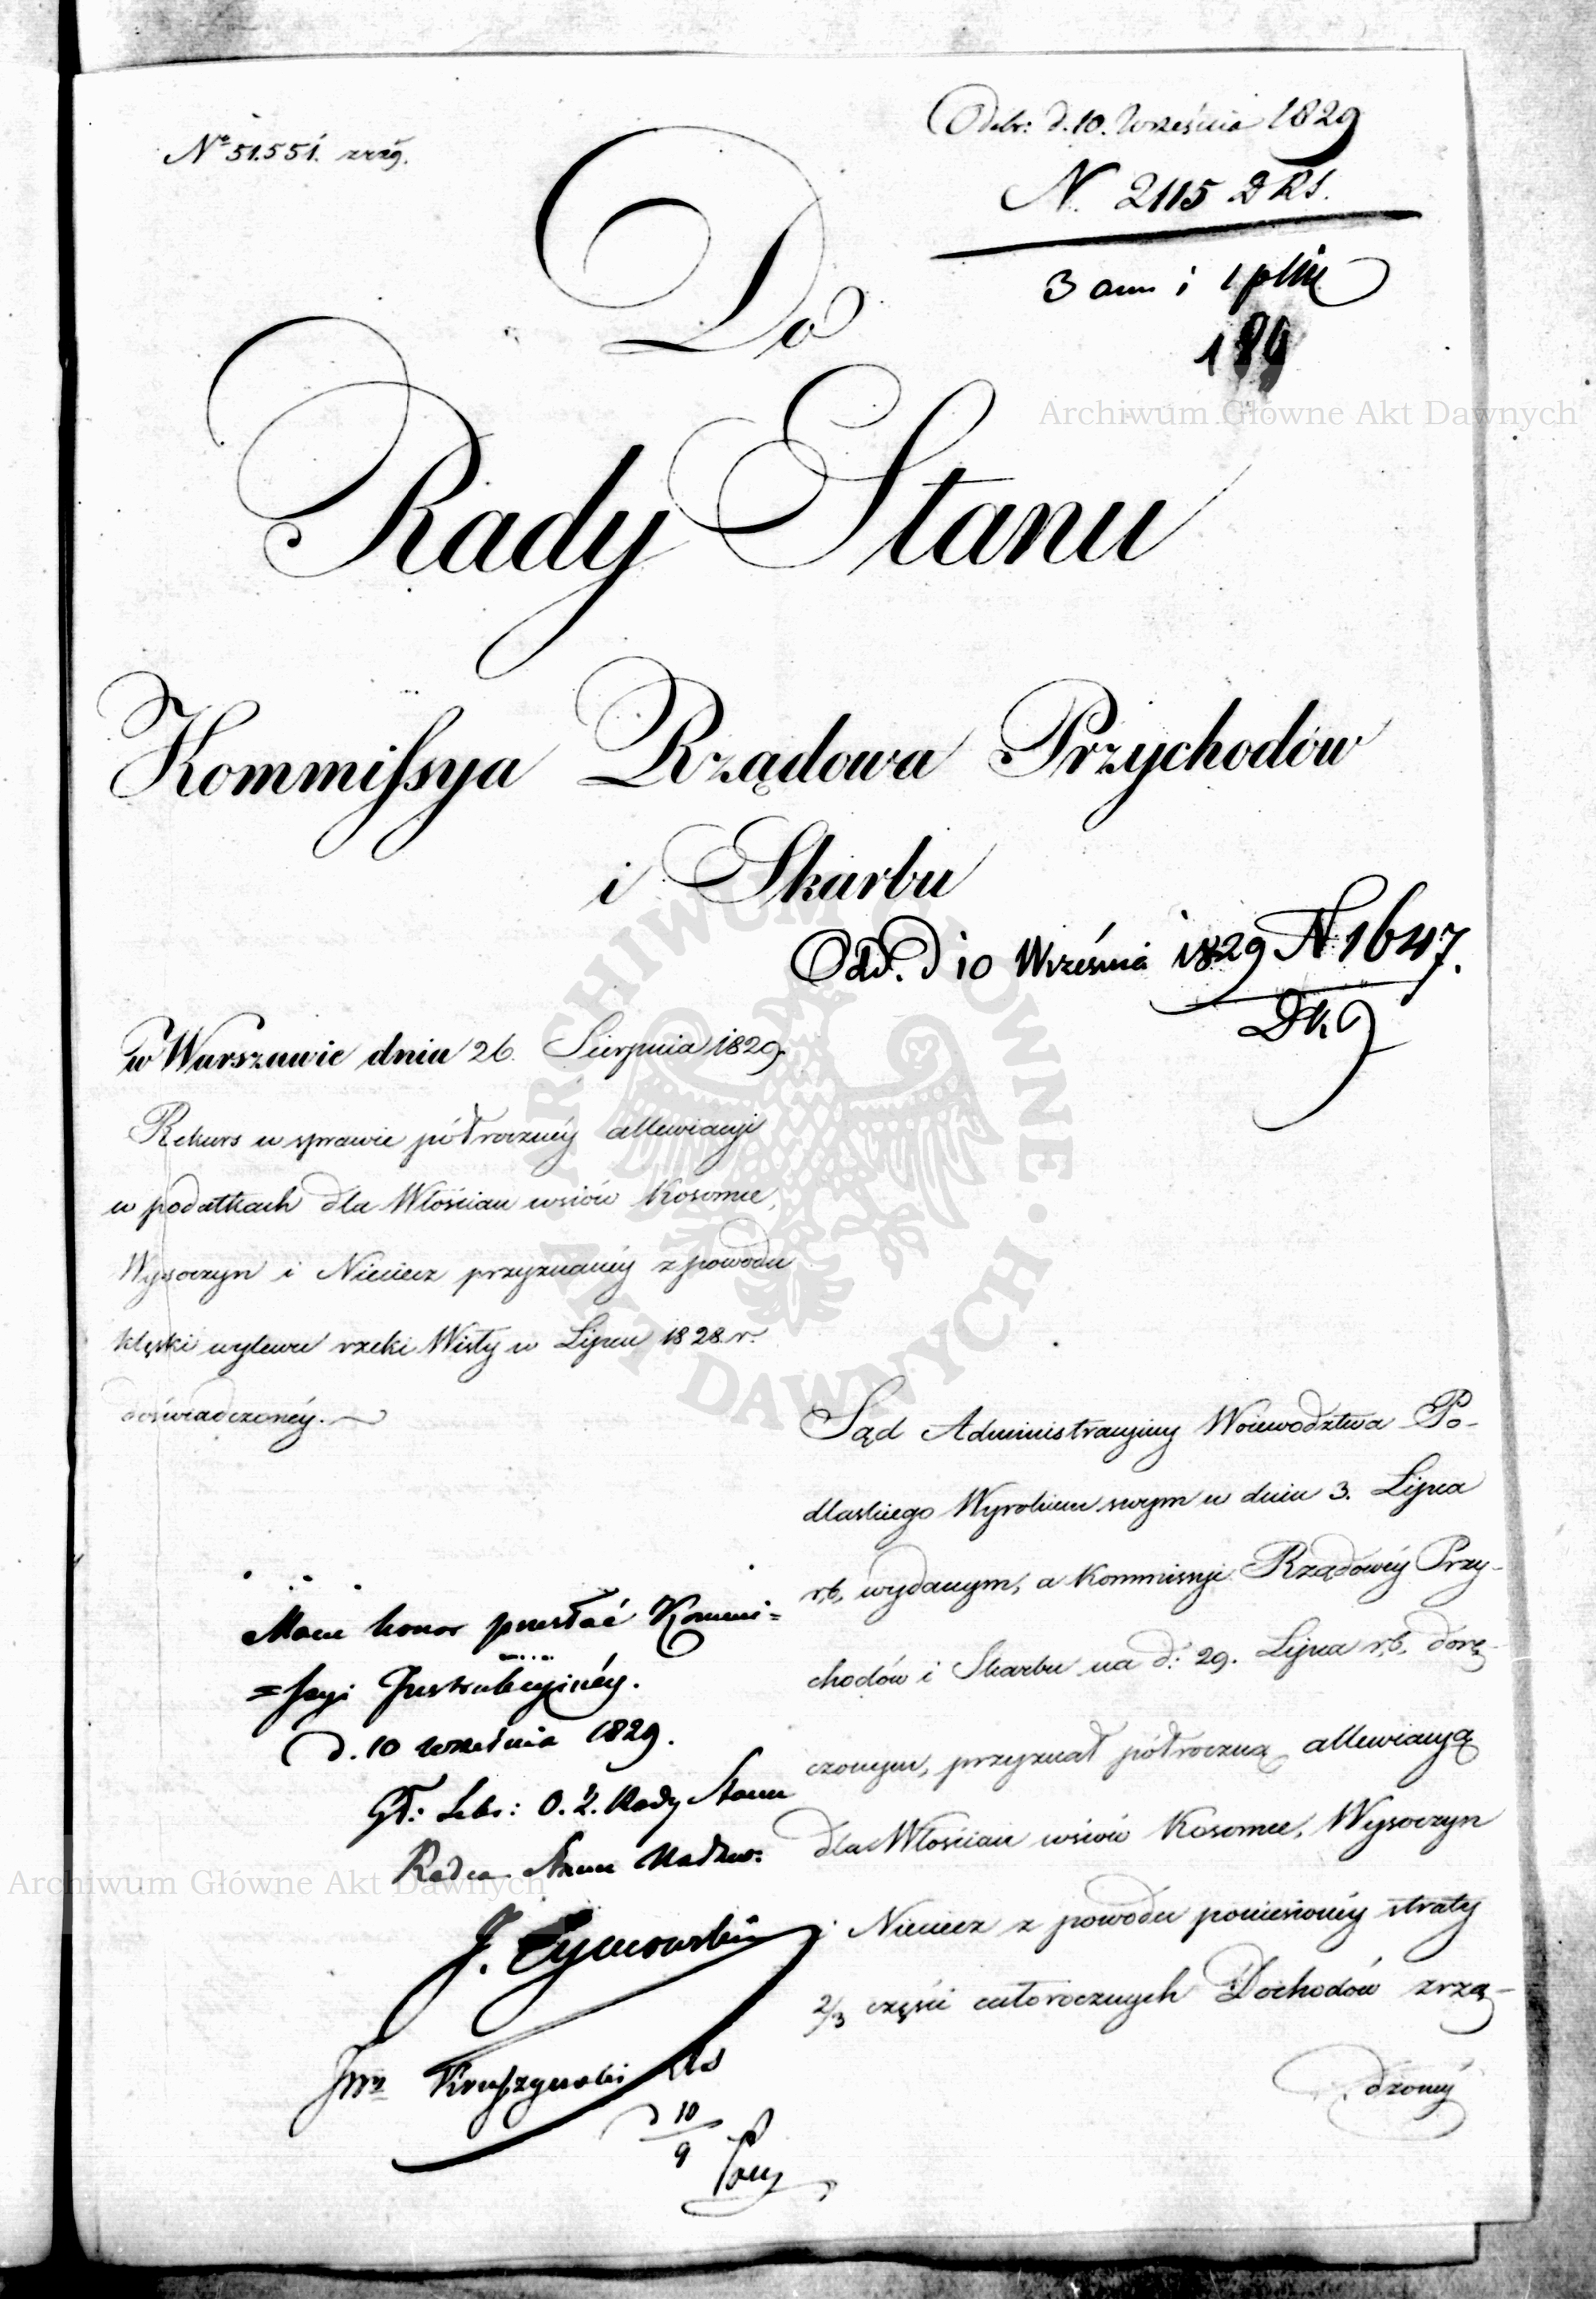 Nº 51.551.
Odebr: d. 10. Września 1829
N. 2115 D R S.
3 ann i 1 plik
189
Do
Rady Stanu
Kommissya Rządowa Przychodów
i Skarbu
Odd. d 10 Września 1829 N 1647.
w Warszawie dnia 26. Sierpnia 1829.
Rekurs w sprawie półrocznéy allewiacyi
w podatkach dla Włościan wsiów Kosomce,
Wysoczyn i Nieciecz przyznanéy z powodu
klęski wylewu rzeki Wisły w Lipcu 1828 r.
doświadczonéy.
Sąd Administracyiny Woiewodztwa Po-
dlaskiego Wyrokiem swym w dniu 3. Lipca
r.b. wydanym, a Kommissyi Rządowéy Przy-
chodów i Skarbu na d: 29. Lipca r.b. dorę-
czonym, przyznał półroczną allewiacyą
dla Włościan wsiów Kosomce, Wysoczyn
i Nieciecz z powodu poniesionéy straty
2/3 części całorocznych Dochodów zrzą-
dzonéy
Mam honor przesłać Kommi=
=ssyi Instrukcyinéy.
d. 10 września 1829.
Rady Stanu
Radca Stanu Nadzw:
J. Tymowski
Kruszynski
10/9
Archiwum Główne Akt Dawnych
Archiwum Główne Akt Dawnych
ARCHIWUM GŁÓWNE AKT DAWNYCH